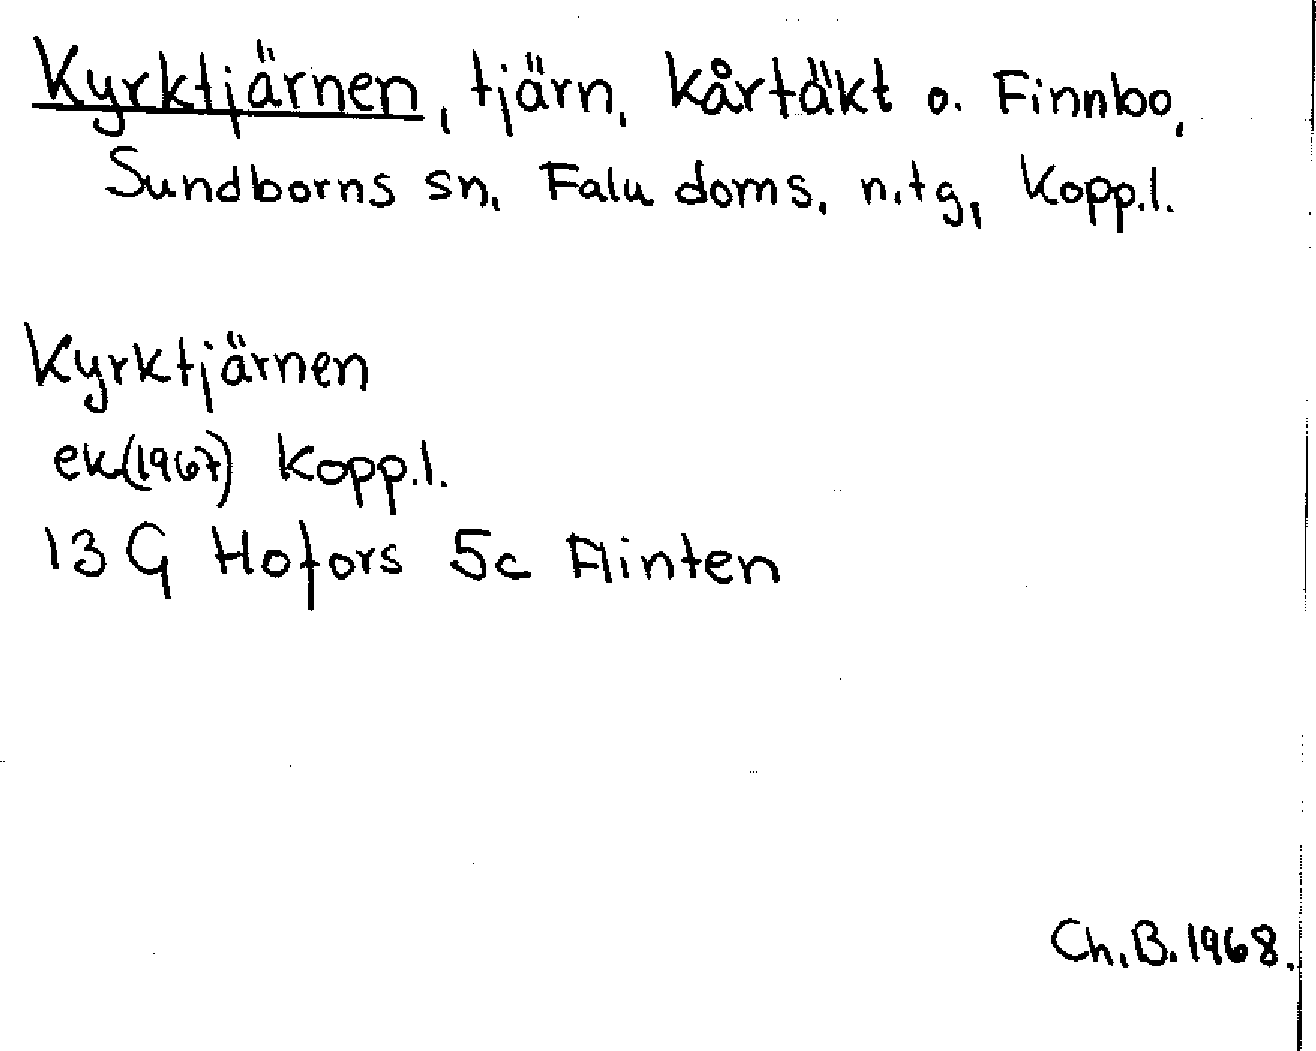 Kyrktjärnen, tjärn, kårtäkt o. Finnbo,
Sundborns sn, Falu doms. n. tg, Kopp.l.
Kyrktjärnen
ek(1967) Kopp.l.
13 G Hofors 5c Flinten
Ch.B. 1968.